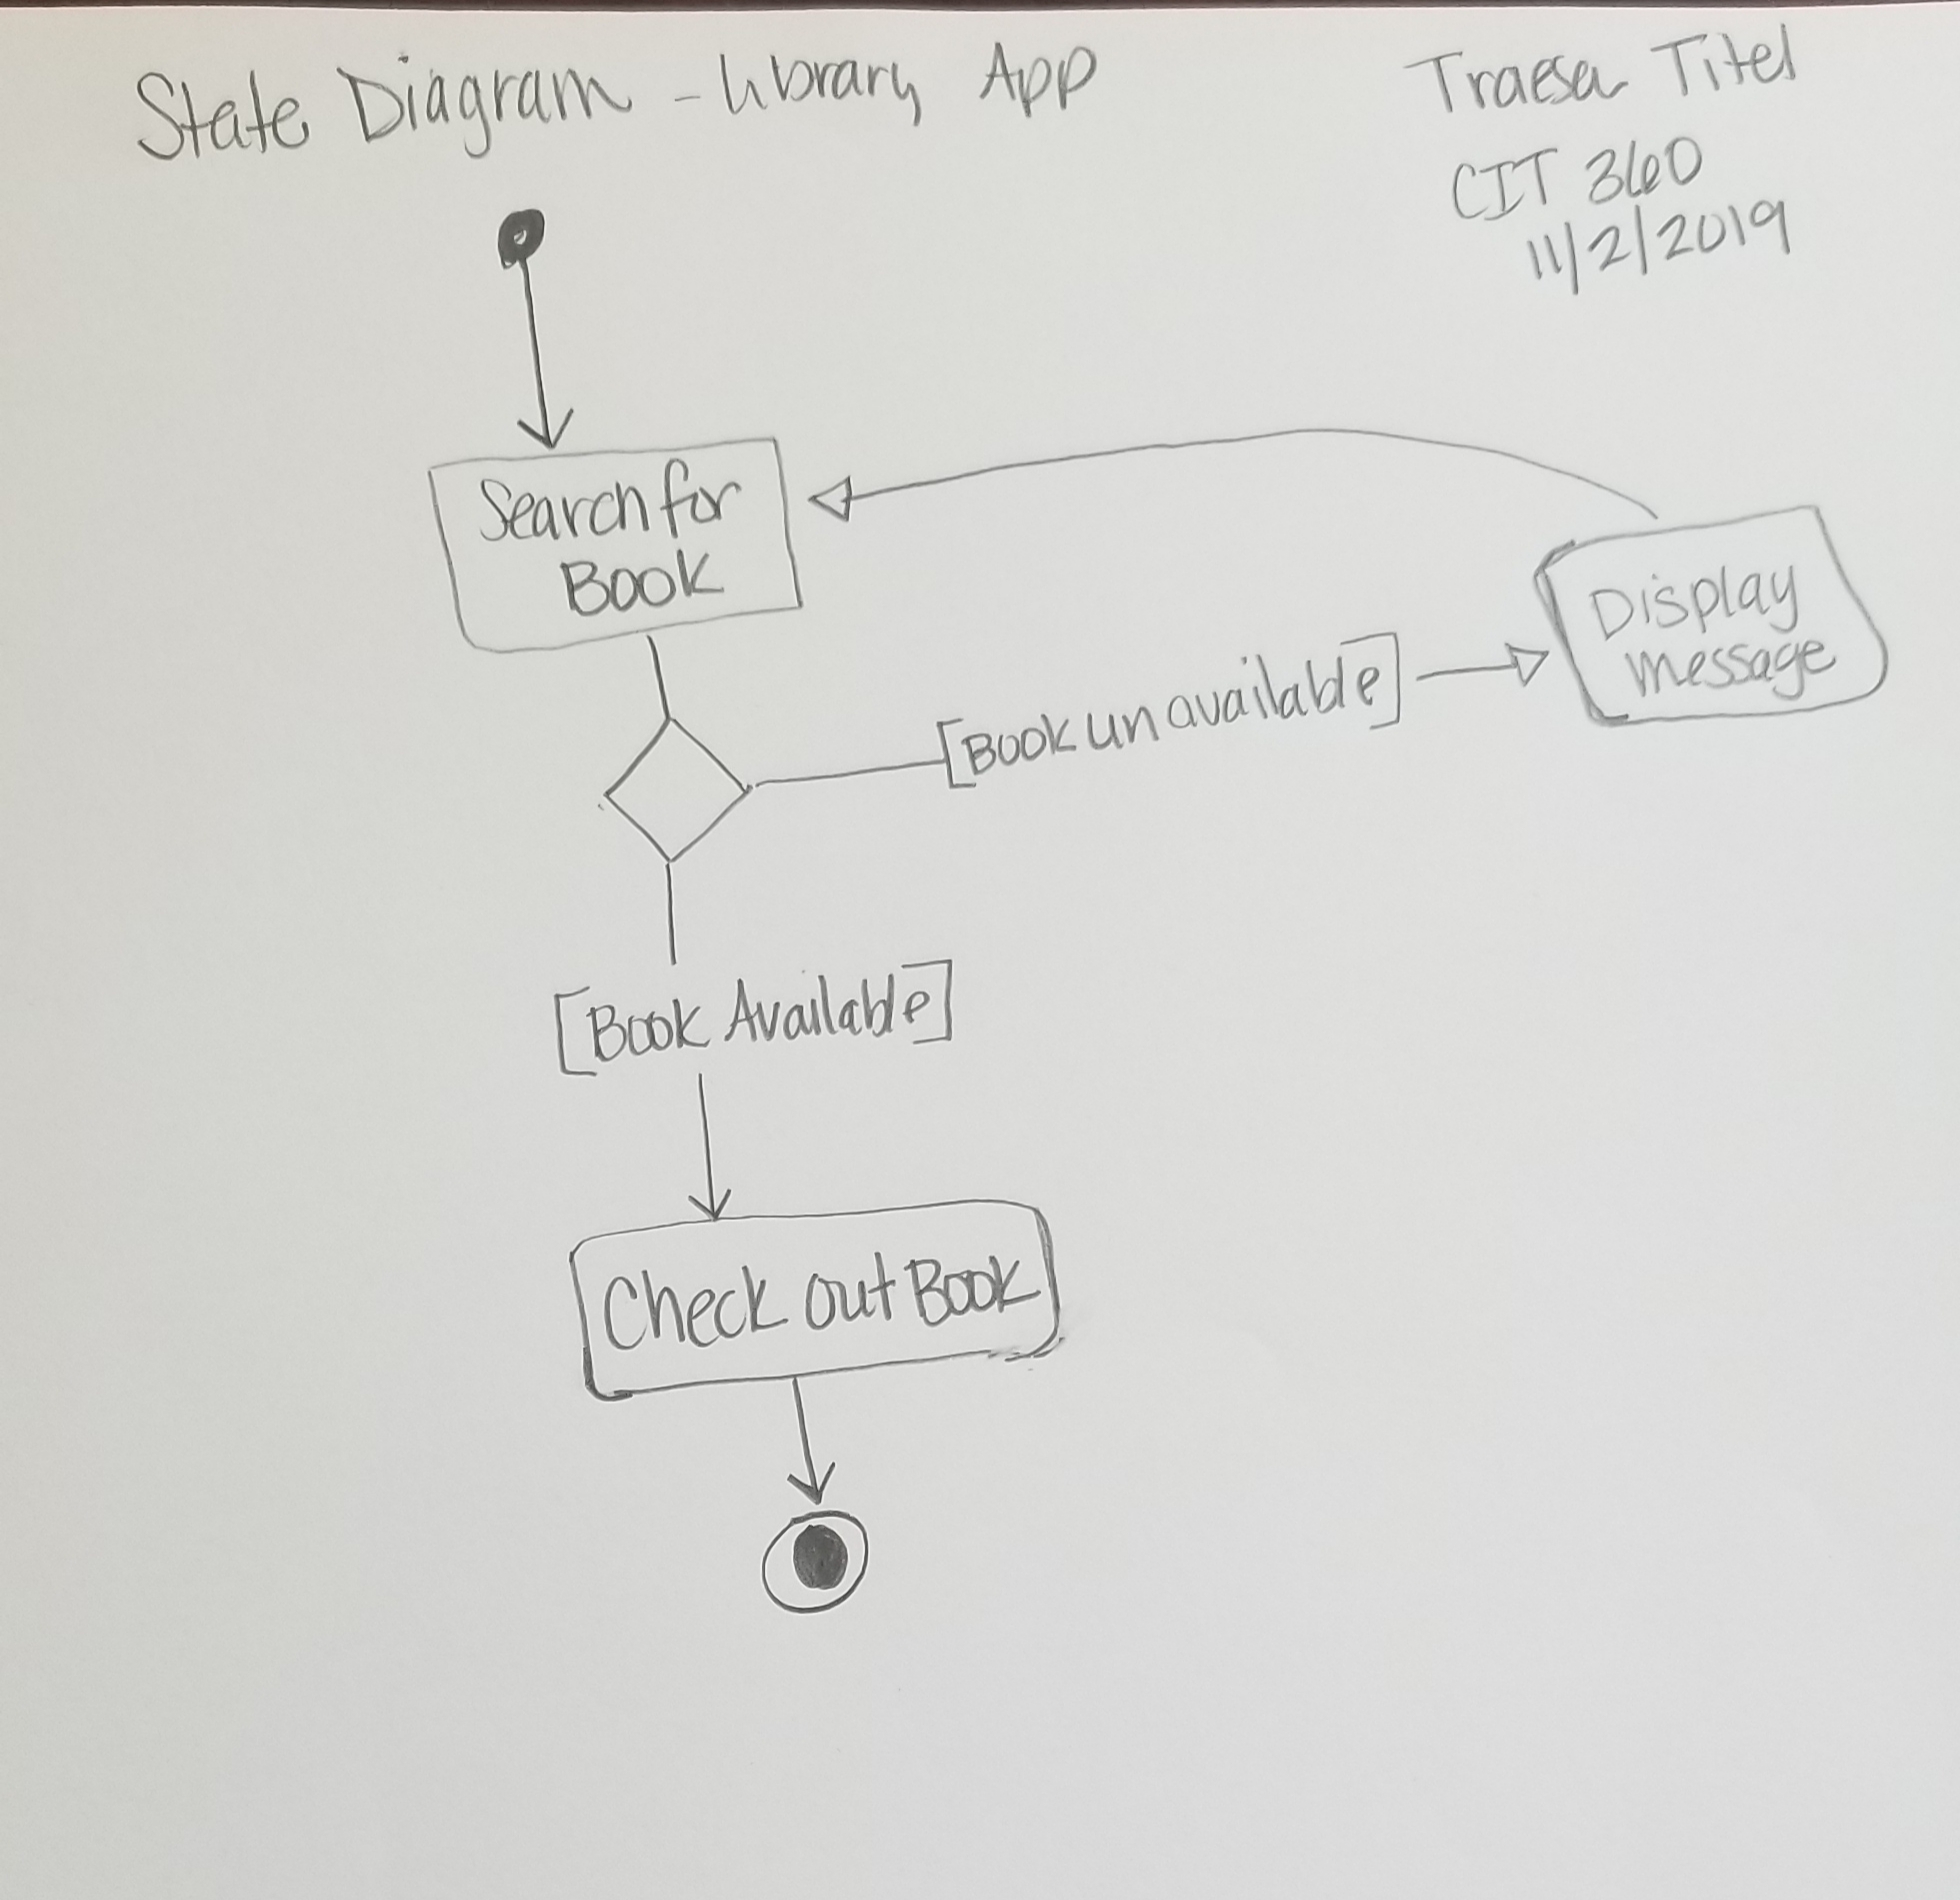 State Diagram - Library App
Traesa Titel
CIT 360
11/2/2019
Search for
Book
[Book unavailable]
Display
Message
[Book Available]
Check out Book